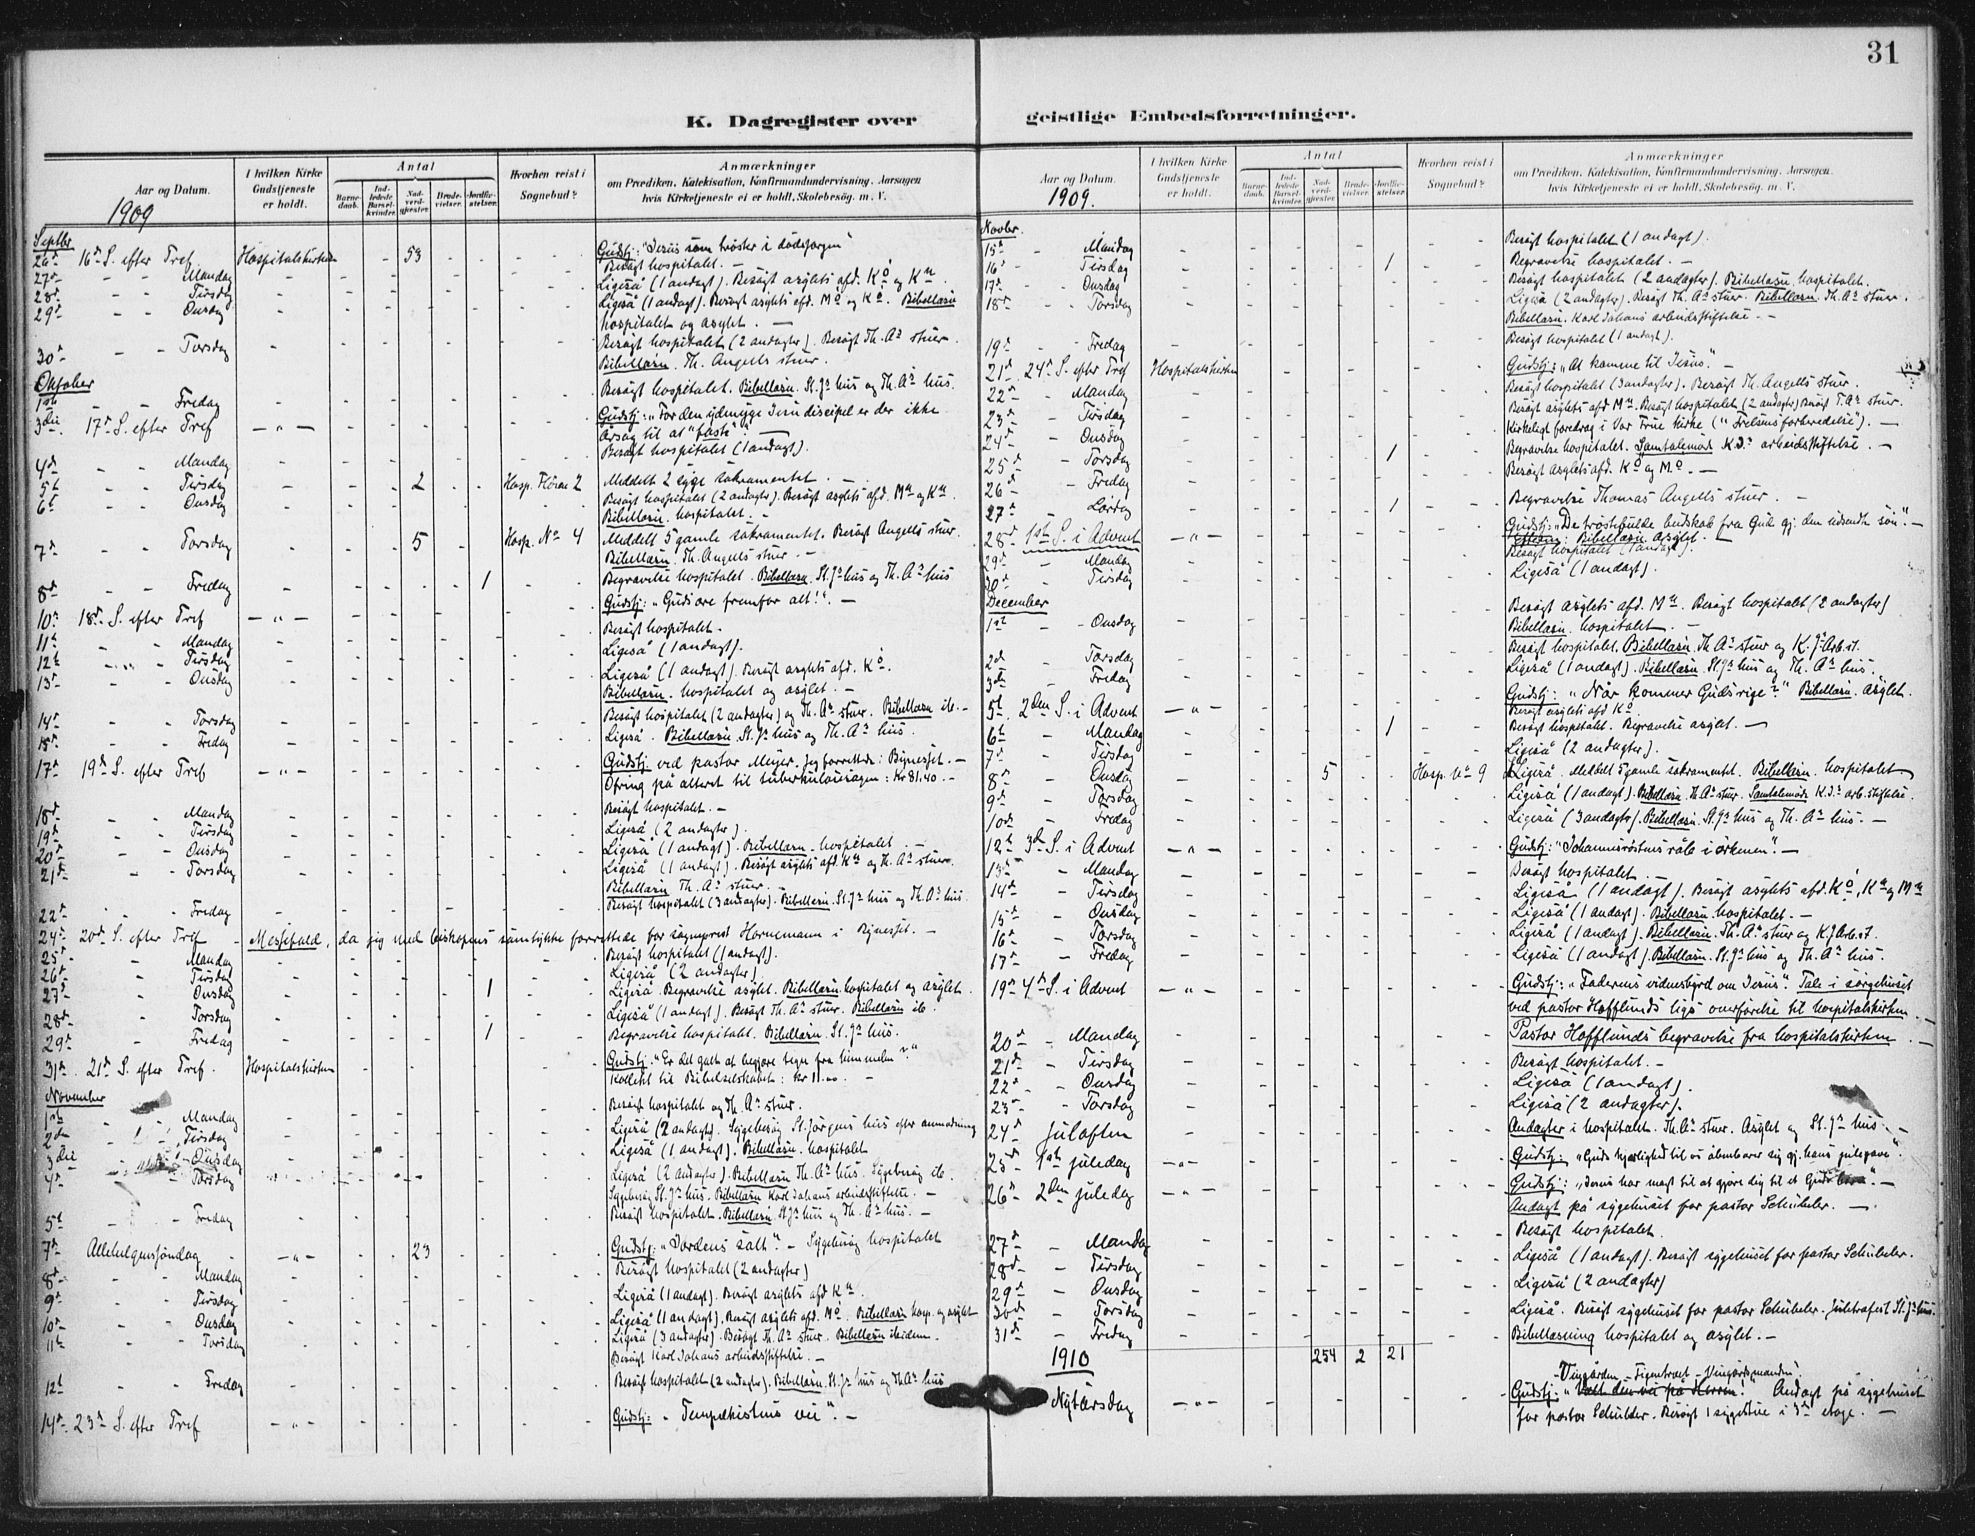 31
K. Dagregister over
geistlige Embedsforretninger.
Aar og Datum.
1909
I hvilken Kirke Gudstjeneste er holdt.
Antal
Barnedaab.
Indledede Barselkvinder.
Nadverdgjester.
Brudevielser.
Jordfæstelser.
Hvorhen reist i Sognebud?
Anmærkninger
om Prædiken, Katekisation, Konfirmandundervisning, Aarsagen
hvis Kirketjeneste ei er holdt, Skolebesøg, m. V.
Septbr
26de 16de S. efter Tref. Hospitalskirken - 53 Gudstj: "Jesus som trøster i dødssorgen"
27de - - Mandag Besøgt hospitalet. -
28de - - Tirsdag Ligeså (1 andagt). Besøgt asylets afd. Kø og Kn
29de - - Onsdag Ligeså (1 andagt). Besøgt asylets afd. Mø og Kø. Bibellæsn
hospitalet og asylet. -
30te - - Torsdag Besøgt hospitalet (2 andagter). Besøgt Th. As stuer
Bibellæsn. Th. Angells stuer.
Oktober
1ste - - Fredag Besøgt hospitalet. Bibellæsn. St. Js hus og Th. As hus.
3die 17de S. efter Tref - " - Gudstj: "For den ydmyge Jesu discipel er der ikke
årsag til at "faste"." -
4de - - Mandag Besøgt hospitalet (1 andagt).
5te - - Tirsdag 2 Hosp. Fløien 2 Meddelt 2 syge sakramentet. -
6te - - Onsdag Besøgt hospitalet (2 andagter). Besøgt asylets afd. Mn og Kn.
Bibellæsn. hospitalet. -
7de - - Torsdag 5 Hosp. No 4 Meddelt 5 gamle sakramentet. Besøgt Angells stuer.
Bibellæsn. Th. Angells stuer. -
8de - - Fredag 1 Begravelse hospitalet. Bibellæsn. St. Js hus og Th. As hus
10de 18de S. efter Tref - " - Gudstj: "Guds ære fremfor alt!". -
11te - - Mandag Besøgt hospitalet. -
12te - - Tirsdag Ligeså (1 andagt).
13de - - Onsdag Ligeså (1 andagt). Besøgt asylets afd. Kø.
Bibellæsn. hospitalet og asylet. -
14de - - Torsdag Besøgt hospitalet (2 andagter) og Th. As stuer. Bibellæsn ib. -
15de - - Fredag Ligeså. Bibellæsn. St. Js hus og Th. As hus.
17de 19de S. efter Tref - " - Gudstj. ved pastor Meyer. Jeg forrettede i Bynesset. -
Ofring på alteret til tuberkulosesagen: Kr 81.40. -
18de - - Mandag Besøgt hospitalet. -
19de - - Tirsdag Ligeså (2 andagter).
20de - - Onsdag Ligeså (1 andagt). Bibellæsn. hospitalet. -
21de - - Torsdag Ligeså (1 andagt). Besøgt asylets afd. Kn og Th. As stuer.
Bibellæsn Th. As stuer. -
22de - - Fredag Besøgt hospitalet (3 andagter). Bibellæsn. St. Js hus og Th. As hus.
24de 20de S. efter Tref - Messefald, da jeg med biskopens samtykke forrettede for sogneprest Hornemann i Bynesset. -
25de - Mandag Besøgt hospitalet (1 andagt).
26de - Tirsdag Ligeså (2 andagter)
27de - Onsdag 1 Ligeså. Begravelse asylet. Bibellæsn. hospitalet og asylet.
28de - Torsdag Ligeså (1 andagt). Besøgt Th. As stuer. Bibellæsn ib.
29de - Fredag 1 Begravelse hospitalet. Bibellæsn. St. Js hus.
31te 21de S. efter Tref. Hospitalskirken Gudstj: "Er det galt at begjære tegn fra himmelen?"
Kollekt til Bibelselskabet: kr 11.00. -
November
1ste - Mandag Besøgt hospitalet og Th. As stuer.
2den - Tirsdag Ligeså (2 andagter). Sygebesøg St. Jørgens hus efter anmodning
3die - Onsdag Ligeså (1 andagt). Bibellæsn. hospitalet
4de - Torsdag Ligeså (2 andagter). Bibellæsn Th. As hus. Sygebesøg ib.
Sygebesøg St. Js hus. Bibellæsn Karl Johans arbeidsstiftelse. -
5te - - Fredag Besøgt hospitalet. Bibellæsn. St. Js hus og Th. As hus. -
7de Allehelgenssøndag - " - 23 Gudstj: "Jordens salt". - Sygebesøg hospitalet
8de - - Mandag Besøgt hospitalet (2 andagter)
9de - - Tirsdag Ligeså (1 andagt). Besøgt asylets afd Kn.
10de - - Onsdag Ligeså (1 andagt). Besøgt asylets afd. Mø. Bibellæsn hosp. og asylet
11te - - Torsdag Ligeså (3 andagter). Besøgt Th. As stuer. Bibellæsn ibidem.
Besøgt Karl Johans arbeidsstiftelse. -
12te - - Fredag Besøgt hospitalet (2 andagter). Bibellæsn. St. Js hus og Th. As hus
14de 23de S. efter Tref - " - Gudstj: "Tempelkistens vei". -
Aar og Datum.
1909.
I hvilken Kirke Gudstjeneste er holdt.
Antal
Barnedaab.
Indledede Barselkvinder.
Nadverdgjester.
Brudevielser.
Jordfæstelser.
Hvorhen reist i Sognebud?
Anmærkninger
om Prædiken, Katekisation, Konfirmandundervisning, Aarsagen
hvis Kirketjeneste ei er holdt, Skolebesøg, m. V.
Novbr.
15de - Mandag Besøgt hospitalet (1 andagt).
16de - Tirsdag 1 Begravelse hospitalet. -
17de - Onsdag Besøgt hospitalet (2 andagter). Bibellæsn. hospitalet.
18de - Torsdag Ligeså (2 andagter). Besøgt Th. As stuer. Bibellæsn. Th. As stuer.
Bibellæsn. Karl Johans arbeidsstiftelse. -
19de - Fredag Besøgt hospitalet (1 andagt).
21de 24de S. efter Tref Hospitalskirken Gudstj: "At komme til Jesus". -
22de - Mandag Besøgt hospitalet (3 andagter). Besøgt Th. Angells stuer.
23de - Tirsdag Besøgt asylets afd Mn. Besøgt hospitalet (2 andagter) Besøgt T. As stuer.
24de - Onsdag Kirkeligt foredrag i Vor Frue kirke ("Frelsens forberedelse"). -
25de - Torsdag 1 Begravelse hospitalet. Samtalemøde K.Js arbeidsstiftelse. -
26de - Fredag Besøgt asylets afd. Kø og Mø. -
27de - Lørdag 1 Begravelse Thomas Angells stuer. -
28de 1ste S. i Advent - " - Gudstj: "Det trøstefulde budskab fra Gud gj. den udsendte søn". -
Bibellæsn asylet.
29de - Mandag Besøgt hospitalet (1 andagt).
30te - Tirsdag Ligeså (1 andagt).
December
1ste - Onsdag Besøgt asylets afd. Mn. Besøgt hospitalet (2 andagter)
Bibellæsn. hospitalet. -
2den - Torsdag Besøgt hospitalet. Bibellæsn. Th. As stuer og K. Js Arb. st.
3die - Fredag Ligeså (1 andagt). Bibellæsn. St. Js hus og Th. As hus.
5te 2den S. i Advent - " - Gudstj: "Når kommer Guds rige?" Bibellæsn. asylet.
Besøgt asylets afd Kø.
6te - Mandag 1 Besøgt hospitalet. Begravelse asylet. -
7de - Tirsdag Ligeså (2 andagter).
8de - Onsdag 5 Hosp. No 9 Ligeså. Meddelt 5 gamle sakramentet. Bibellæsn. hospitalet
9de - Torsdag Ligeså (1 andagt). Bibellæsn Th. As stuer. Samtalemøde K.Js arb. stiftelse.
10de - Fredag Ligeså (3 andagter). Bibellæsn. St. Js hus og Th. As hus. -
12te 3die S. i Advent - " - Gudstj: "Johannesrøstens råb i ørkenen". -
13de - Mandag Besøgt hospitalet. -
14de - Tirsdag Ligeså (1 andagt). Besøgt asylets afd. Kø, Kn og Mn
15de - Onsdag Ligeså (1 andagt). Bibellæsn. hospitalet. -
16de - Torsdag Ligeså (1 andagt). Bibellæsn. Th. As stuer og K.J Arb. st.
17de - Fredag Ligeså (1 andagt). Bibellæsn. St. Js hus og Th. As hus.
19de 4de S. i Advent - " - Gudstj: "Faderens vidnesbyrd om Jesus". Tale i sørgehuset
ved pastor Hofflunds ligs overførelse til hospitalskirken. -
20de - Mandag Pastor Hofflunds begravelse fra hospitalskirken. -
21de - Tirsdag Besøgt hospitalet. -
22de - Onsdag Ligeså (1 andagt).
23de - Torsdag Ligeså (2 andagter).
24de Juleaften Andagter i hospitalet. Th. As stuer. Asylet og St. Js hus. -
25de 1ste juledag - " - Gudstj: "Guds kjærlighed til os åbenbarer sig gj. hans julegave".
26de 2den juledag - " - Gudstj: "Jesus har magt til at gjøre dig til et Guds barn". -
Andagt på sygehuset for pastor Schübeler. -
27de - Mandag Besøgt hospitalet.
28de - Tirsdag Ligeså (1 andagt). Besøgt sygehuset for pastor Schübeler.
29de - Onsdag Ligeså (2 andagter)
30te - Torsdag Ligeså. Besøgt sygehuset for pastor Schübeler. Juletræfest St. Js hus.
31te - Fredag Bibellæsning hospitalet og asylet. -
1910 254 2 21
Vingården - Figentræet - Vingårdsmanden
Nytårsdag - " - Gudstj: "Vælt den vei på Herren". Andagt på sygehuset
for pastor Schübeler. Besøgt 1 sygestue i 3die etage. -